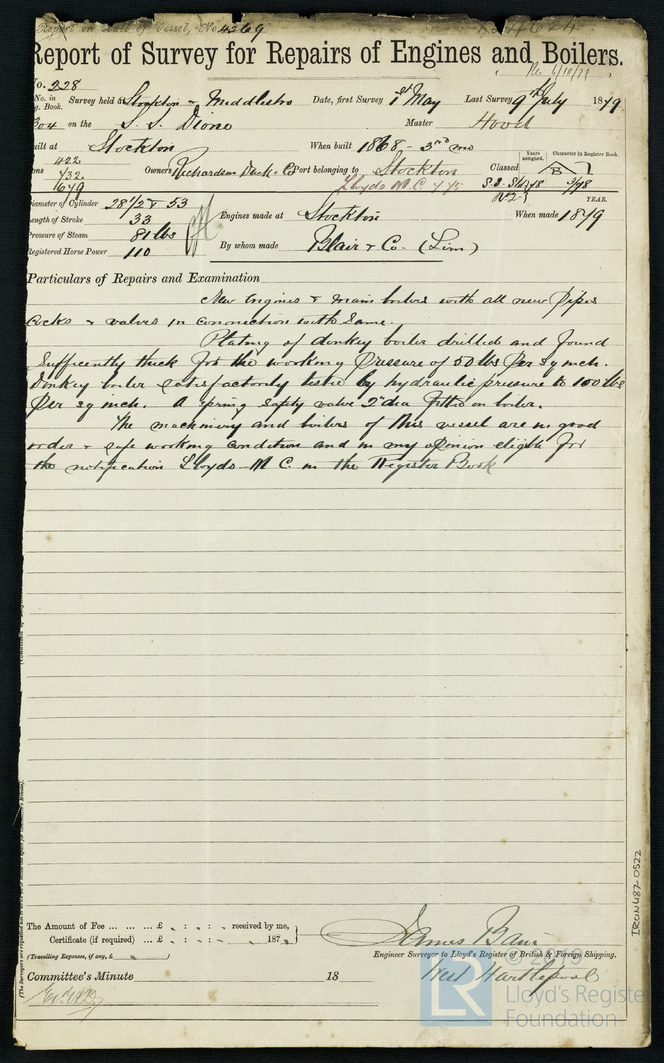 Report on Hull of Vessel, No 4269
Report of Survey for Repairs of Engines and Boilers.
No. 228
No. in Survey held at Stockton & Middlesbro Date, first Survey 1st May Last Survey 9th July 1879
g. Book.
304 on the S. S. Dione Master Hood
uilt at Stockton When built 1868 - 3rd mo
Years assigned. Character in Register Book.
ons 422 Owners Richardson Duck & Co Port belonging to Stockton Classed B 1
432 Lloyds M.C. 4 75 S.S. Std 78 3/78
1679 No 2-3
YEAR.
iameter of Cylinder 28 1/2 & 53
ength of Stroke 33 Engines made at Stockton When made 1879
ressure of Steam 81 lbs
egistered Horse Power 110 By whom made Blair & Co. (Lim)
Particulars of Repairs and Examination
New Engines & main boilers with all new pipes
cocks & valves in connection with same.
Plating of donkey boiler drilled and found
sufficiently thick for the working pressure of 50 lbs per sq inch.
Donkey boiler satisfactorily tested by hydraulic pressure to 100 lbs
per sq inch. A spring safety valve 2" dia fitted on boiler.
The machinery and boilers of this vessel are in good
order & safe working condition and in my opinion eligible for
the notification Lloyds M C. in the Register Book
The Amount of Fee ... ... ... £ : : received by me,
Certificate (if required) ... £ : : 187
(Travelling Expenses, if any, £ )
James Bain
Engineer Surveyor to Lloyd's Register of British & Foreign Shipping.
West Hartlepool
Committee's Minute 18
IRON487-0522
© 2019
LR
Lloyd's Register
Foundation